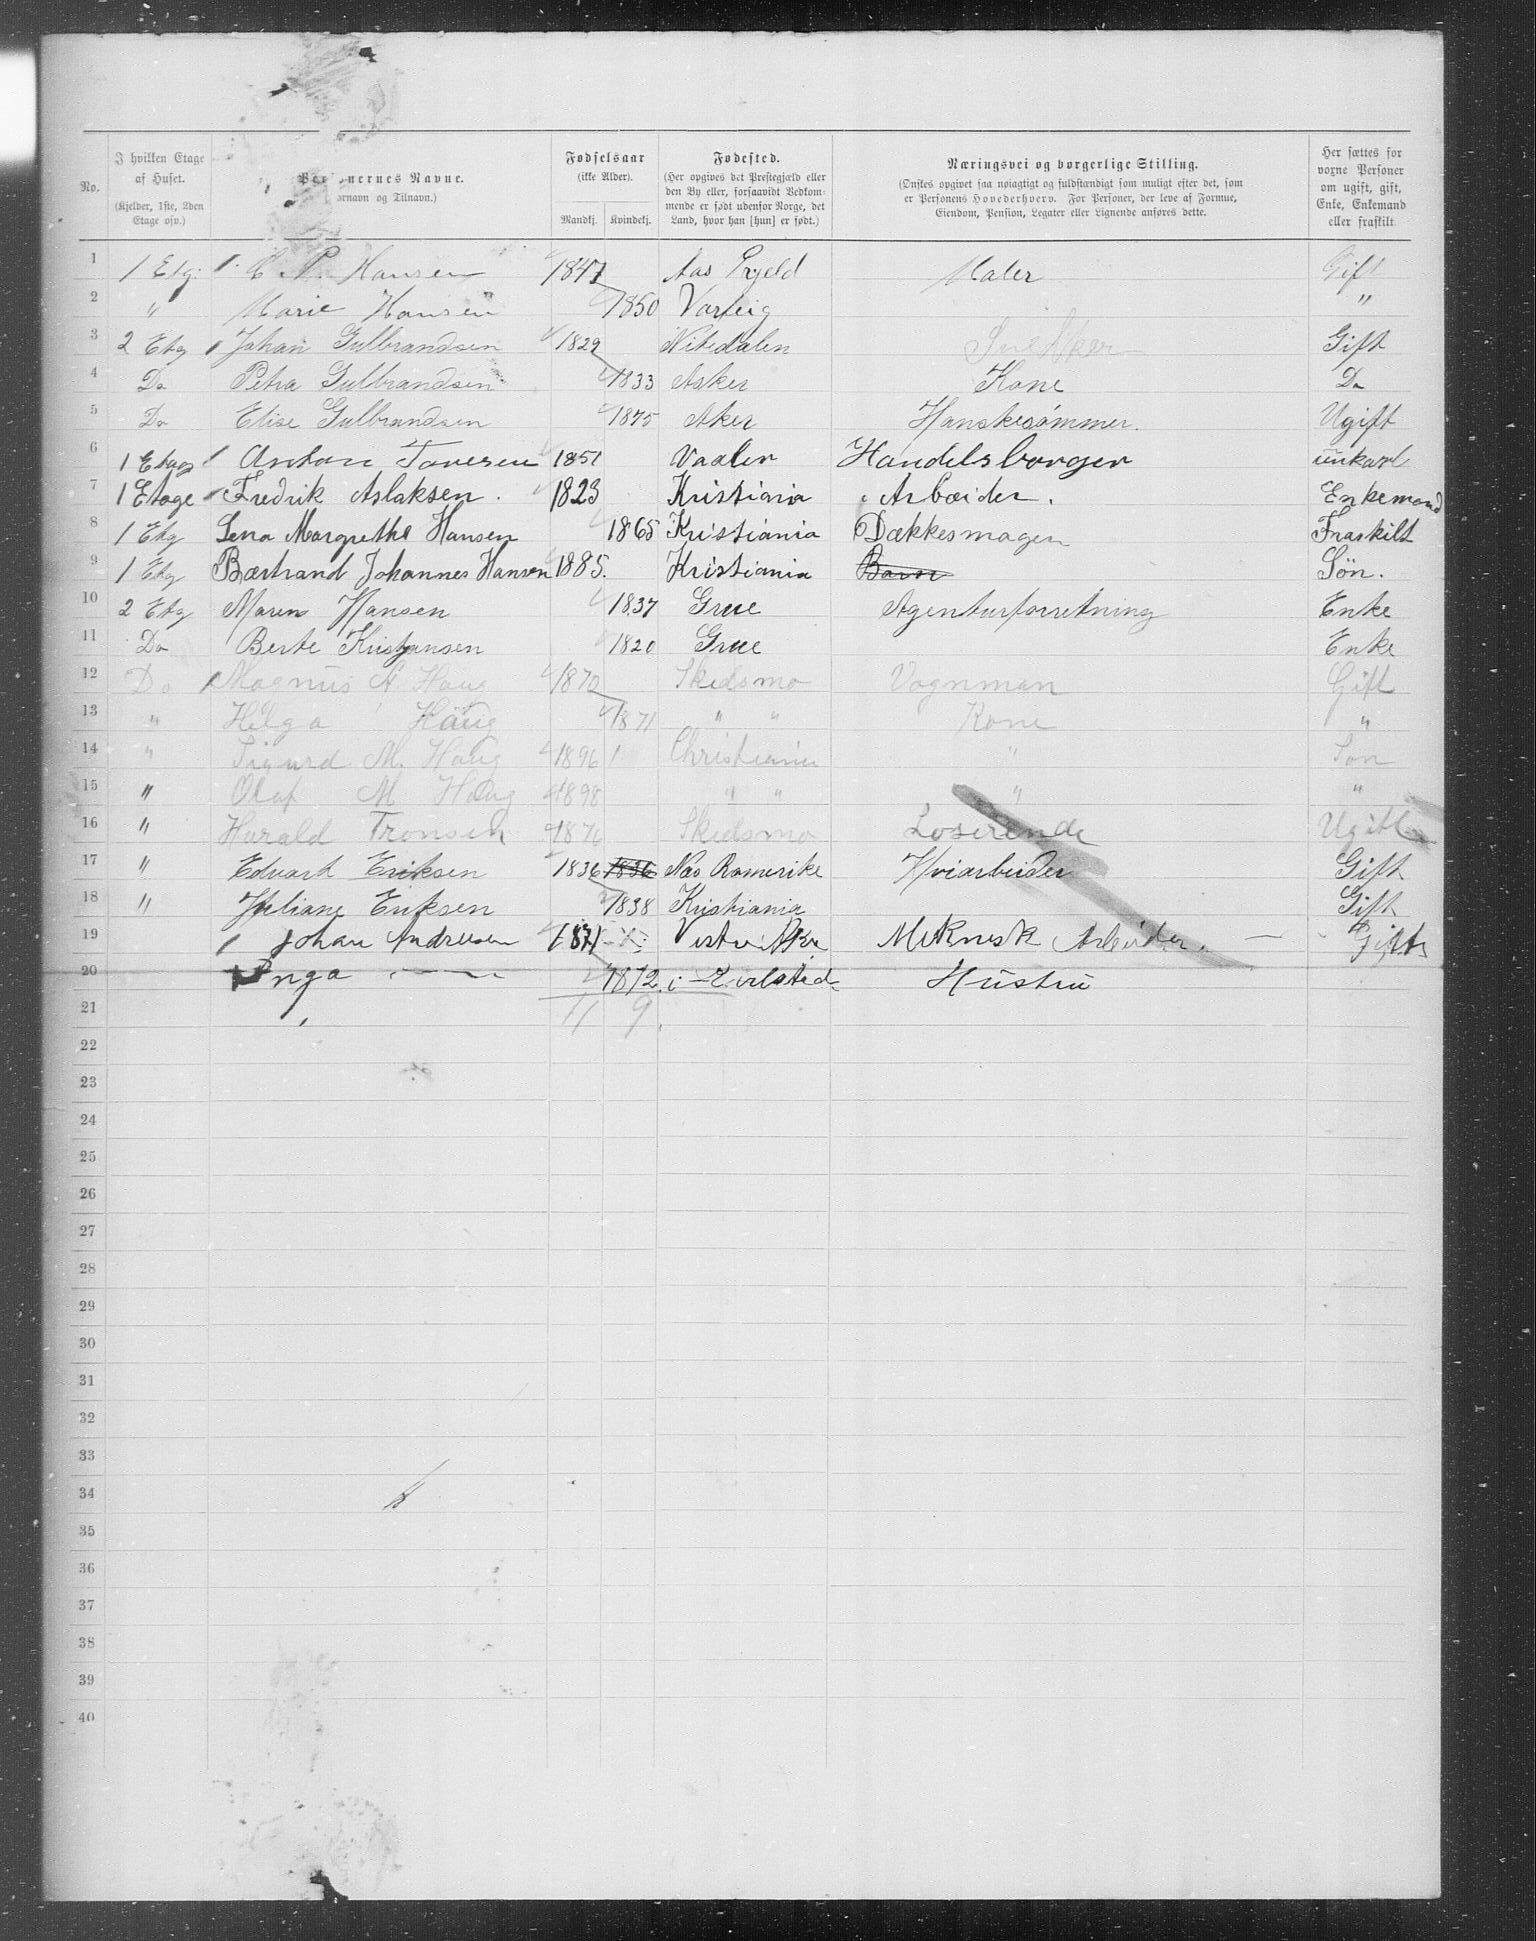 No. | I hvilken Etage af Huset. (Kjelder, 1ste, 2den Etage osv.) | Personernes Navne. (Fornavn og Tilnavn.) | Fødselsaar (ikke Alder). Mandkj. | Kvindekj. | Fødested. (Her opgives det Prestegjæld eller den By eller, forsaavidt Vedkommende er født udenfor Norge, det Land, hvor han [hun] er født.) | Næringsvei og borgerlige Stilling. (Ønskes opgivet saa nøiagtigt og fuldstændigt som muligt efter det, som er Personens Hovederhverv. For Personer, der leve af Formue, Eiendom, Pension, Legater eller Lignende anføres dette. | Her sættes for voxne Personer om ugift, gift, Enke, Enkemand eller fraskilt
1 | 1 Etg. | Hansen | 1847 | | Aas Prgjeld | Maler | Gift
2 | " | Marie Hansen | | 1850 | Varteig | | "
3 | 2 Etg | Johan Gulbrandsen | 1829 | | Nitedalen | Snedker | Gift
4 | Do | Petra Gulbrandsen | | 1833 | Asker | Kone | Do
5 | Do | Elise Gulbrandsen | | 1875 | Aker | Hanskesømmer. | Ugift
6 | 1 Etage | Anton Tovesen | 1851 | | Vaaler | Handelsborger | unkarl
7 | 1 Etage | Fredrik Aslaksen. | 1823 | | Kristiania | Arbæider. | Enkemand
8 | 1 Etg | Lena Margrethe Hansen | | 1865 | Kristiania | Dækkesmagen | Fraskilt
9 | 1 Etg | Bærtrand Johannes Hansen | 1885. | | Kristiania | Barn | Søn.
10 | 2 Etg | Maren Hansen | | 1837 | Grue | Agenturforretning | Enke
11 | Do | Berte Kristjansen | | 1820 | Grue | | Enke
12 | Do | Magnus A. Haug | 1870 | | Skedsmo | Vognman | Gift
13 | " | Helga Haug | | 1871 | " " | Kone | "
14 | " | Sigurd M. Haug | 1896 | | Christiania | " | Søn
15 | " | Olaf M Haug | 1898 | | " " | " | "
16 | " | Harald Tronsen | 1876 | | Skedsmo | Loserende | Ugift
17 | " | Edvart Eriksen | 1836 | 1836 | Næs Romerike | Hviarbeider | Gift
18 | " | Juliane Eriksen | | 1838 | Kristiania | | Gift
19 | Johan Andresen | 1871 | | Vestre Aker | Meknisk Arbeider. | Gift
20 | Inga | | 1872. | | Hustru
21 | 11 | 9
22
23
24
25
26
27
28
29
30
31
32
33
34
35
36
37
38
39
40